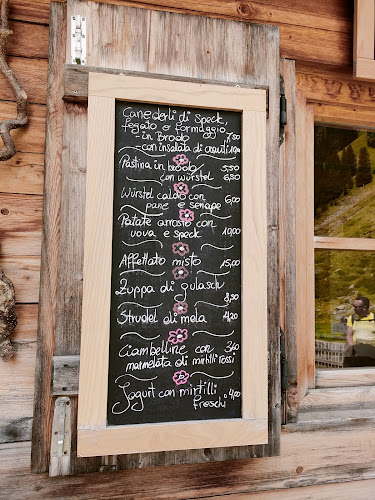 Canederli di Speck,
fegato o formaggio
- in Brodo 7,50
- con insalata di crauti
Pastina in brodo 5,50
con würstel 6,50
Würstel caldo con 6,00
pane e senape
Patate arrosto con
uova e speck 10,00
Affettato misto 15,00
Zuppa di gulasch
8,50
Strudel di mela 4,20
Ciambelline con 3,60
marmelata di mirtilli rossi
Jogurt con mirtilli 4,00
freschi